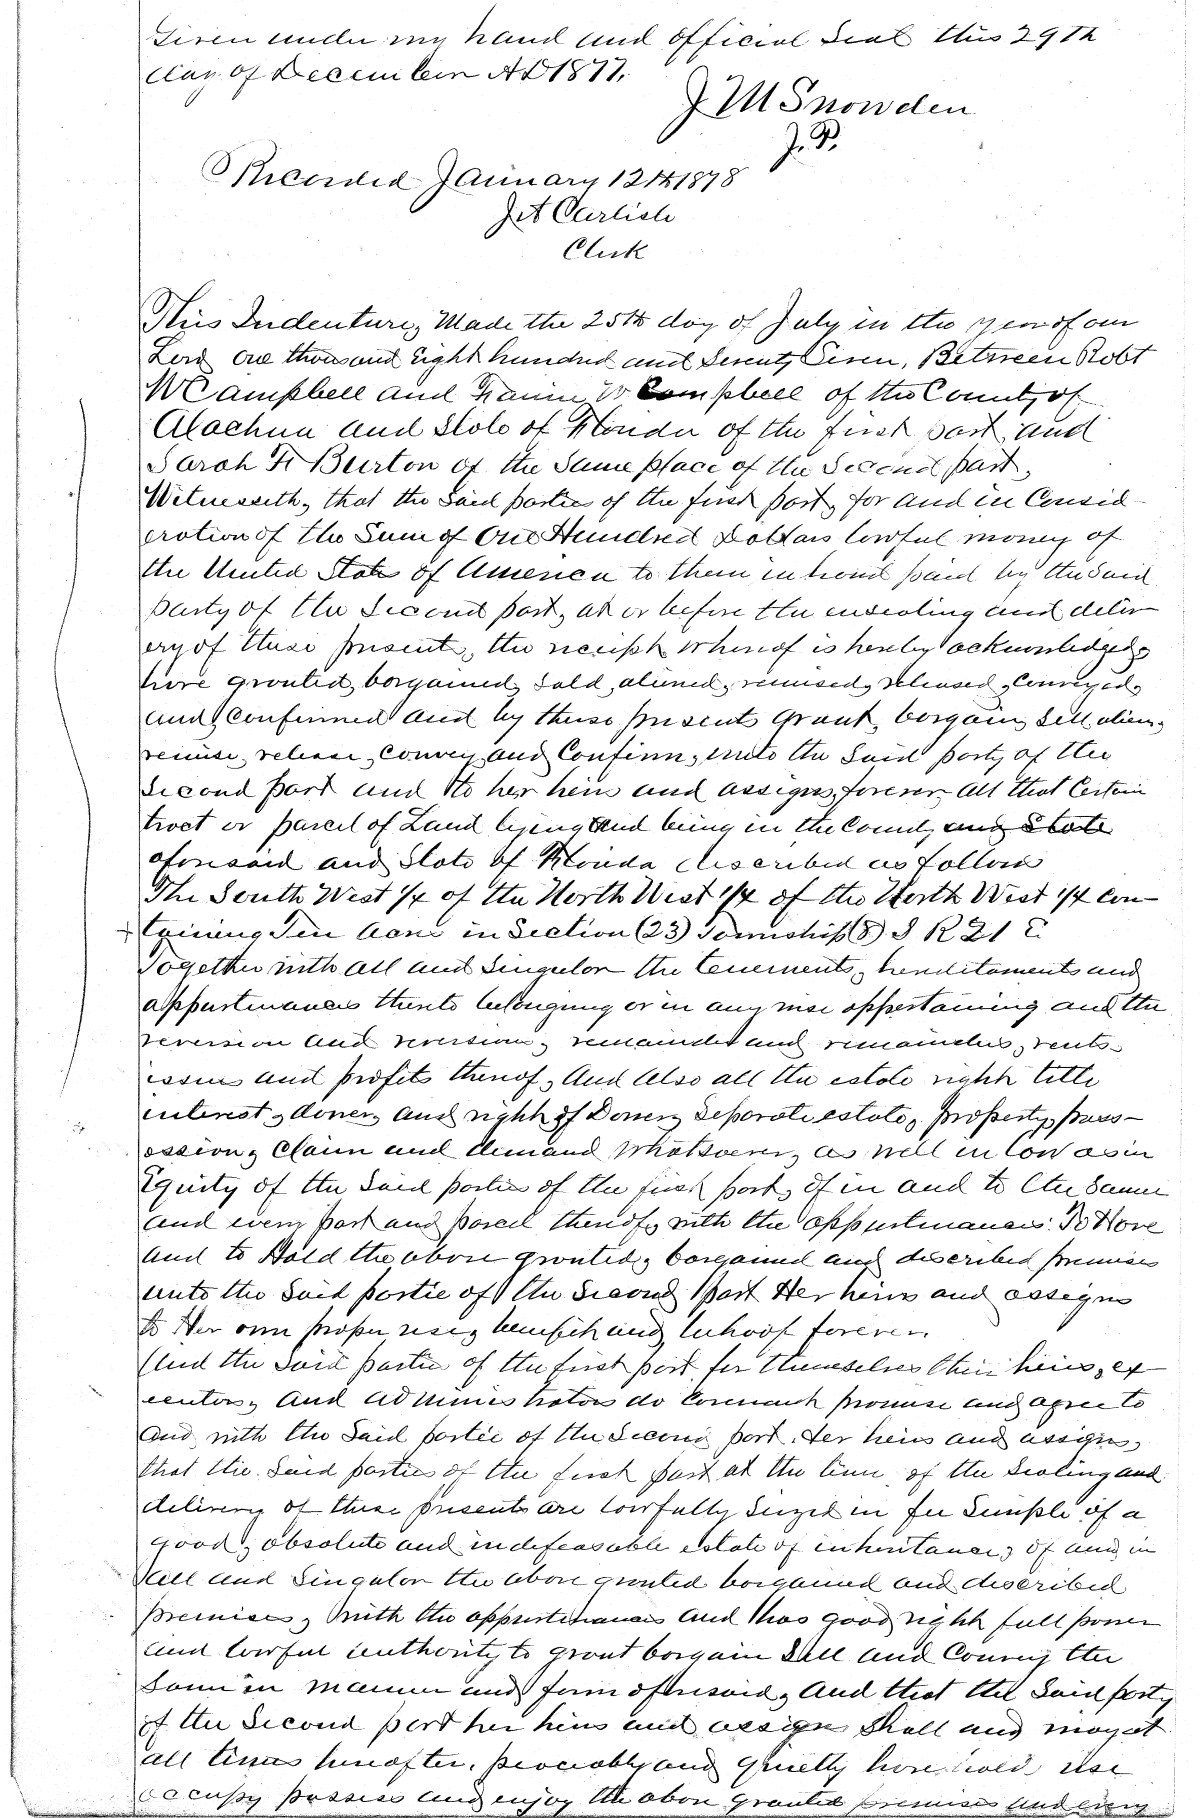 Given under my hand and official Seal this 29th
day of December AD 1877.
J M Snowden
J. P.
Recorded January 12th 1878
J A Carlisle
Clerk
This Indenture, Made the 25th day of July in the year of our
Lord One thousand Eight hundred and Seventy Seven, Between Robt
W Campbell and Fannie W Campbell of the County of
Alachua and State of Florida of the first part, and
Sarah H Burton of the Same place of the Second part,
Witnesseth, that the Said parties of the first part, for and in Consid-
eration of the Sum of One Hundred Dollars lawful money of
the United State of America to them in hand paid by the Said
party of the Second part, at or before the ensealing and deliv-
ery of these present, the receipt whereof is hereby acknowledged,
have granted, bargained, Sold, aliened, remised, released, Conveyed,
and Confirmed and by these presents grant, bargain, Sell, alien,
remise, release, Convey, and Confirm, unto the Said party of the
Second part and to her heirs and assigns, forever, all that Certain
tract or parcel of Land lying and being in the County and State
aforesaid and State of Florida described as follows
The South West 1/4 of the North West 1/4 of the North West 1/4 Con-
taining Ten Acres in Section (23) Township (8) S R 21 E
Together with all and Singular the tenements, hereditaments and
appurtenances thereto belonging or in any wise appertaining and the
reversion and reversions, remainder and remainders, rents
issues and profits thereof, And Also all the estate right title
interest, dower, and right of Dower, Separate estate, property, poss-
ession, Claim and demand whatsoever, as well in Law as in
Equity of the Said parties of the first part, of in and to the Same
and every part and parcel thereof, with the appurtenances. To Have
and to Hold the above granted, bargained and described premises
unto the Said partie of the Second part Her heirs and assigns
to Her own proper use, benefit and behoof forever.
And the Said partie of the first part for themselves their heirs, ex
ecutors, and Administrators do Covenant promise and agree to
and, with the Said partie of the Second part, Her heirs and assigns,
that the Said parties of the first part at the time of the Sealing and
delivery of these presents are lawfully Seized in fee Simple of a
good, absolute and indefeasable estate of inheritance, of and in
all and Singular the above granted bargained and described
premises, with the appurtenances and has good right full power
and lawful authority to grant bargain Sell and Convey the
Same in manner and form aforesaid, And that the Said party
of the Second part her heirs and assigns Shall and may at
all times hereafter, peaceably and quietly have hold, use
occupy possess and enjoy the above granted premises and every